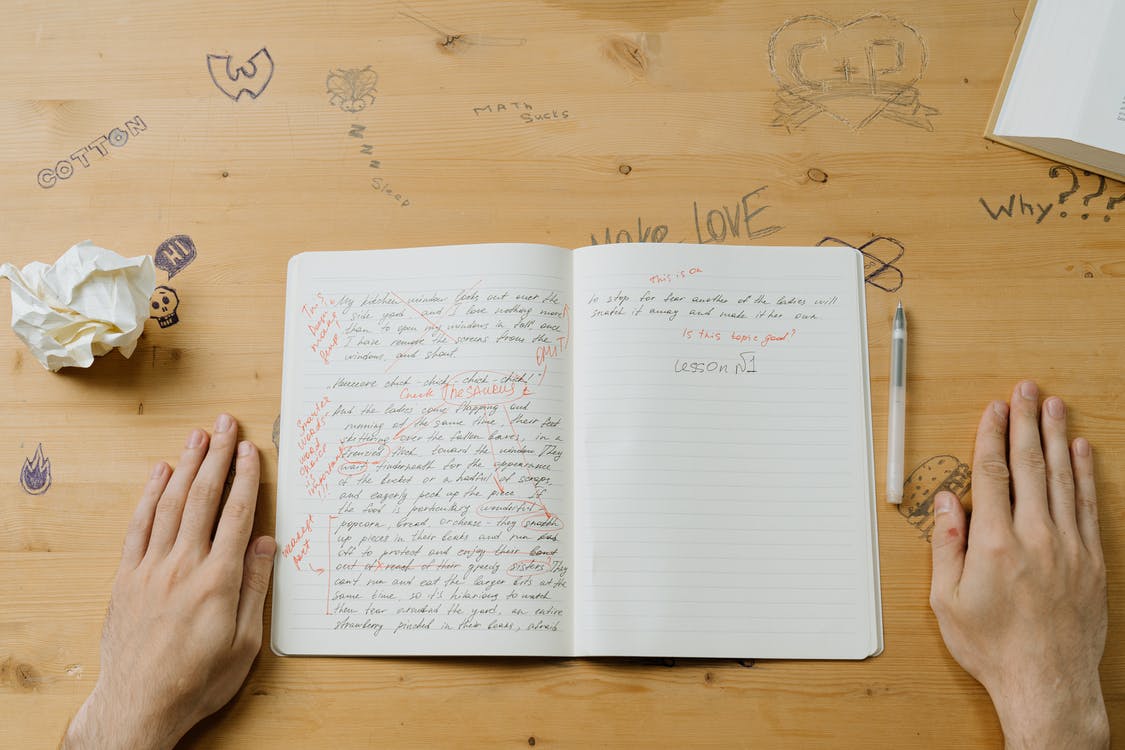 COTTON
W
MATH
Sucks
C+P
N
N
N
Sleep
Why???
HI
Make LOVE
My kitchen window looks out over the
side yard and I love nothing more
than to open my windows in fall once
I have remove the screens from the
windows, and shout.
chick - chick - chick - chick!"
Check THESAURUS
And the ladies come flapping and
running at the same time, their feet
skittering over the fallen leaves, in a
frenzied flock toward the window. They
wait underneath for the appearance
of the bucket or a handful of scraps,
and eagerly peck up the piece. If
the food is particulary wonderful
popcorn, bread, or cheese - they snatch
up pieces in their beaks and run
off to protect and enjoy their
out of reach of their greedy sisters. They
can't run and eat the larger bits at the
same time, so it's hilarious to watch
them tear around the yard, an entire
strawberry pinched in their beaks, afraid
OMIT
weakest
part
this is on
to stop for fear another of the ladies will
snatch it away and make it her own.
Is this topic good?
Lesson №1